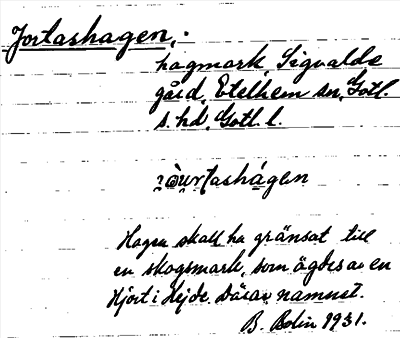 Jortashagen,:
hagmark, Sigvalde
gård, Etelhem sn, Gotl.
s. hd, Gotl. l.
Hagen skall ha gränsat till
en skogsmark, som ägdes av en
Hjort i Hejde. Därav namnet.
B. Bolin 1931.